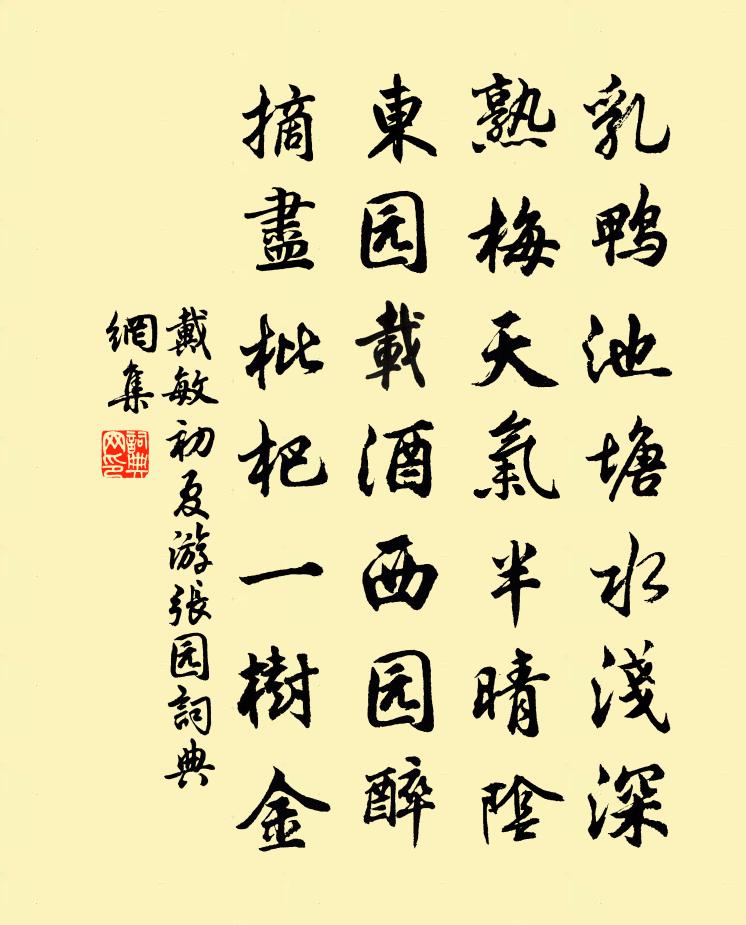 乳鸭池塘水淺深
熟梅天氣半晴陰
東园載酒西园醉
摘盡枇杷一樹金
戴敏初夏游張园詞典
網集
詞典网印